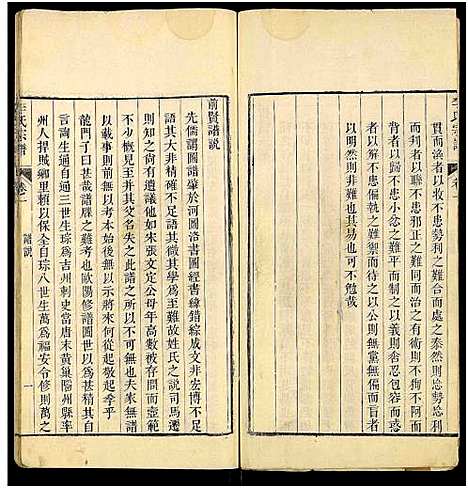 李氏宗譜
卷一
貫而渙者以收不患勢利之難合而處之泰然則忘勢忘利
而弱者以聯不患邪正之難齊而待之有道則不狥不阿而
離者以萃不患小忿之難平而制之以義則杏忍包容而
以安不患偏執之難禦而行之以公則無黨無偏而
以明然則非甚易也其可不勉哉
前賢譜說
先儒謂圖譜肇於河圖洛書圖經書緯錯綜成文非宏博不足
語其大非精確不足語其微其學爲至難故姓氏之說司馬遷
則知尚有遺議他如朱張文定公母年高被存問而壼範
不少概見至併其父名失之此譜之所以不可無也夫家無譜
以載事則前乎我者本始後無以示將來何從起敬起孝乎
龍門子曰甚哉譜牒之難考也歐陽修譜圖世以爲甚精其
言詢生通自通三世生琮爲吉州刺史當唐末黄巢陷州縣率
州人捍賊鄉里賴以保全自琮八世生萬爲福安令修則萬之
李氏宗譜
卷一
譜說
一